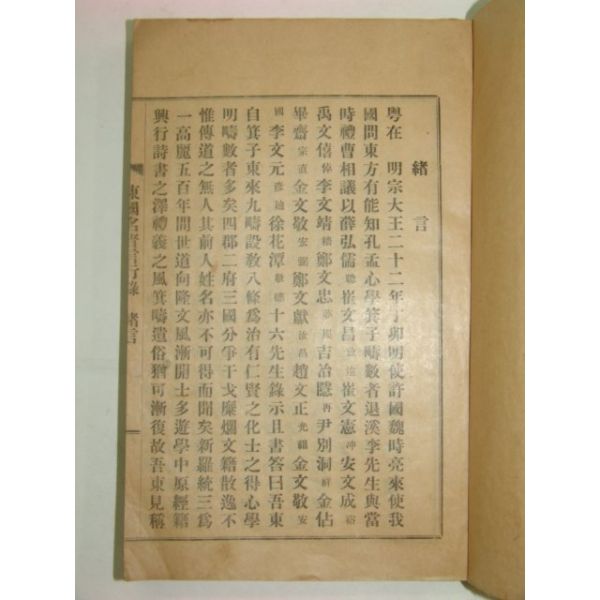 緖言
粤在 明宗大王二十二年丁卯明使許國魏時亮來使我
國問東方有能知孔孟心學箕子疇數者退溪李先生與當
時禮曹相議以薛弘儒聰崔文昌致遠崔文憲冲安文成裕
禹文僖倬李文靖穡鄭文忠夢周吉冶隱再尹別洞祥金佔
畢齋宗直金文敬宏弼鄭文獻汝昌趙文正光祖金文敬安
國李文元彦迪徐花潭敬德十六先生錄示且書答曰吾東
自箕子東來九疇設敎八條爲治有仁賢之化士之得心學
明疇數者多矣四郡二府三國分爭干戈糜爛文籍散逸不
惟傳道之無人其前人姓名亦不可得而聞矣新羅統三爲
一高麗五百年間世道向隆文風漸開士多遊學中原經籍
興行詩書之澤禮義之風箕疇遺俗猶可漸復故吾東見稱
東國名賢言行錄 緖言